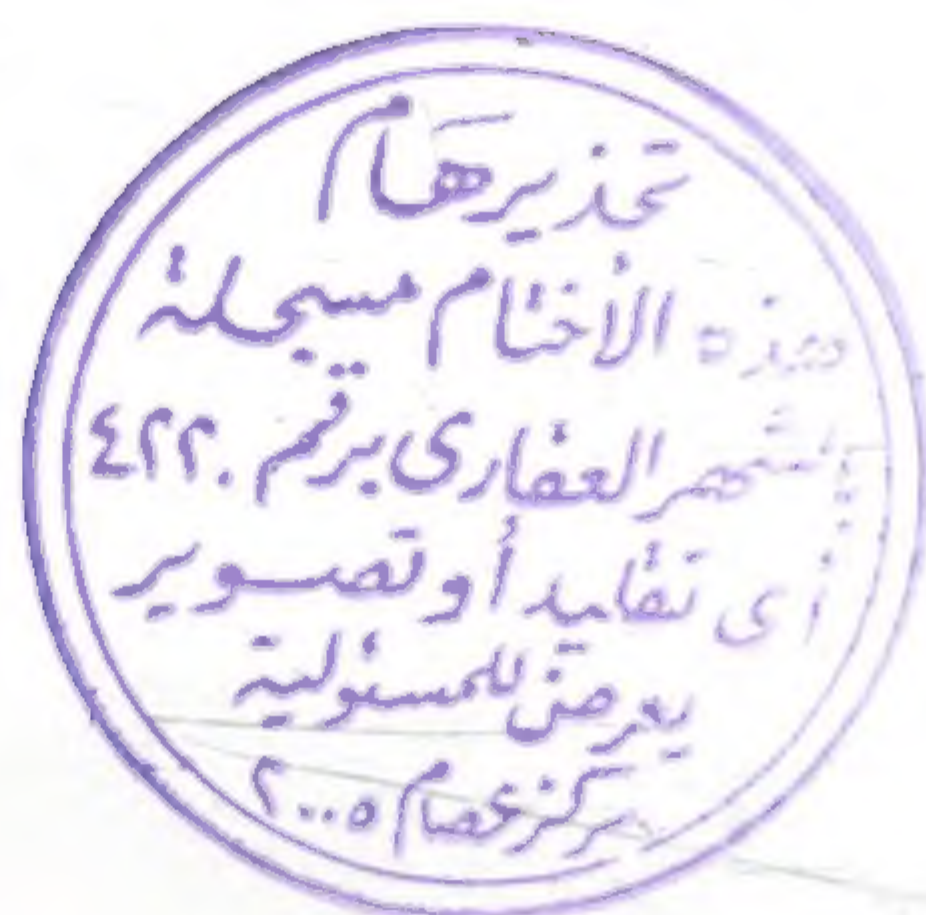 تحذير هام
هذه الأختام مسجلة
بالشهر العقارى برقم ٤٢٢٠
أى تقليد أو تصوير
يعرض للمسئولية
مركز عصام ٢٠٠٥